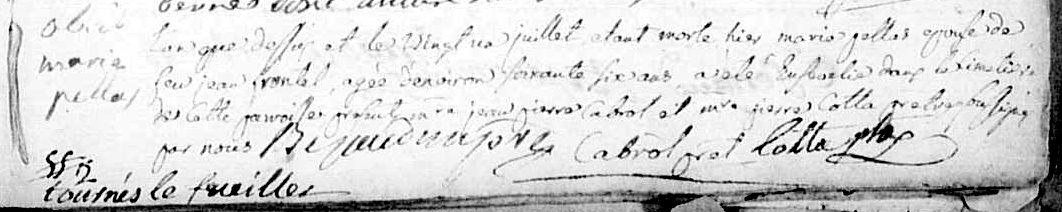 obiit
marie
pellas
L'an que dessus et le vingt un juillet, etant morte hier marie pellas epouse de
feu jean frontel, agée denviron soixante six ans, a eté Ensevelie dans le Cimetiere
de Cette paroisse presents mrs jean pierre Cabrol et mre pierre Cotta pretres soussignes
par nous
Cabrol pret Cotta ptre
tournés le fueillet